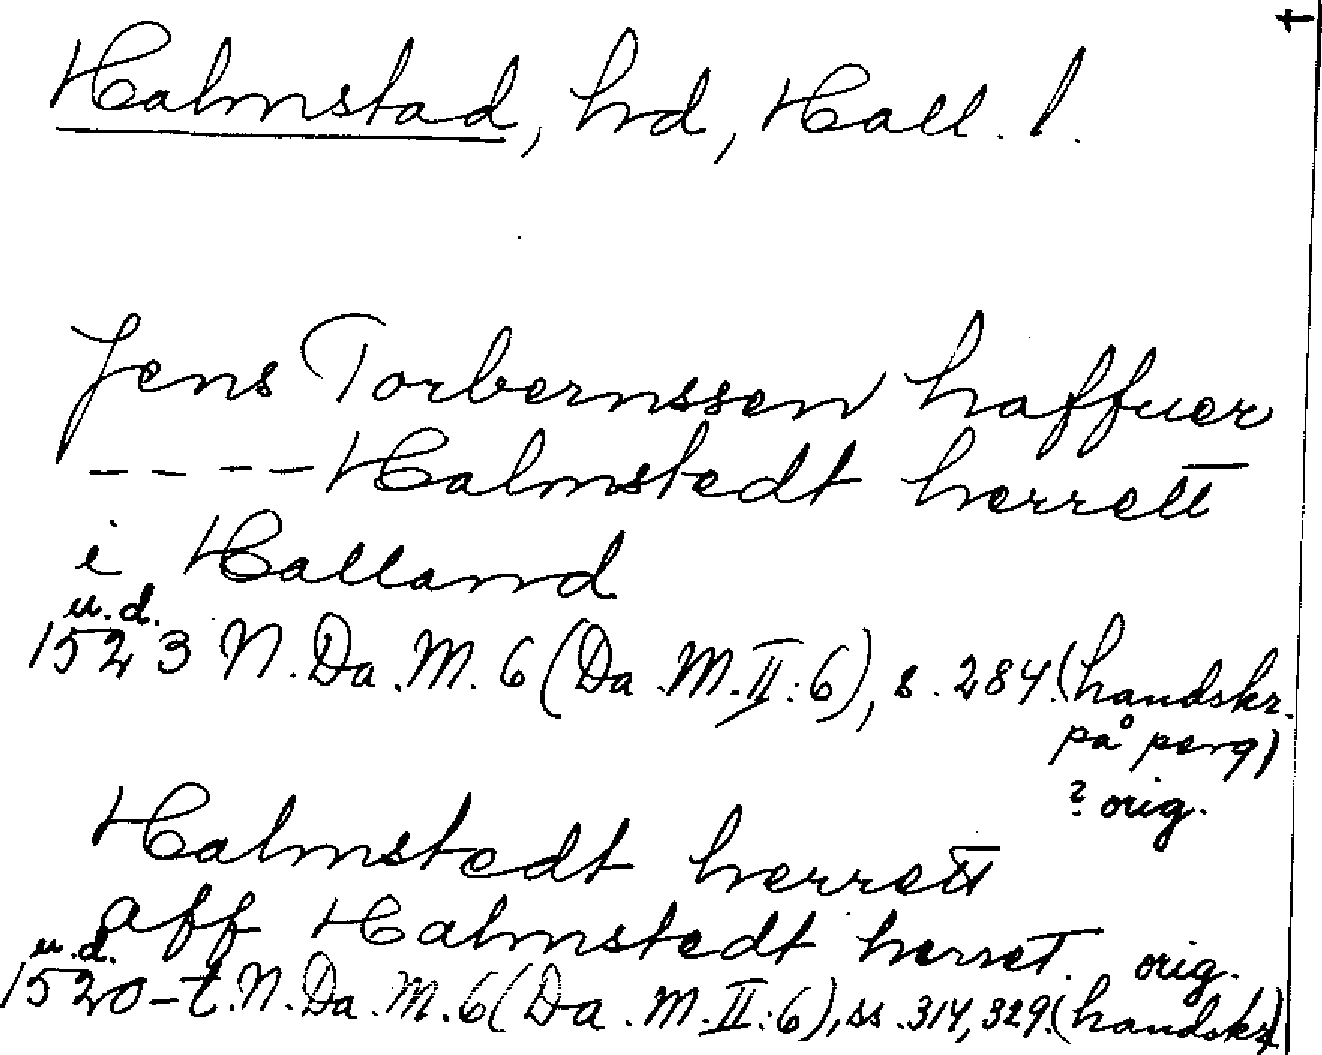 Halmstad, hd, Hall. l.
Jens Torbernssen haffuer
---- Halmstedt herrett
i Halland
u.d.
1523 N. Da. M. 6 (Da. M. II:6), s. 284. (handskr.
på perg)
? orig.
Halmstedt herrett
aff Halmstedt herret. orig.
u.d.
1520-t. N. Da. M. 6 (Da. M. II:6), ss. 314, 329. (handskr)